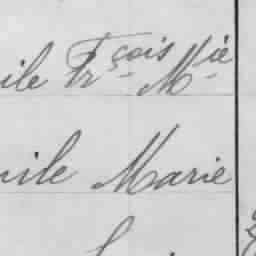 ile Frçois Mie
ile Marie